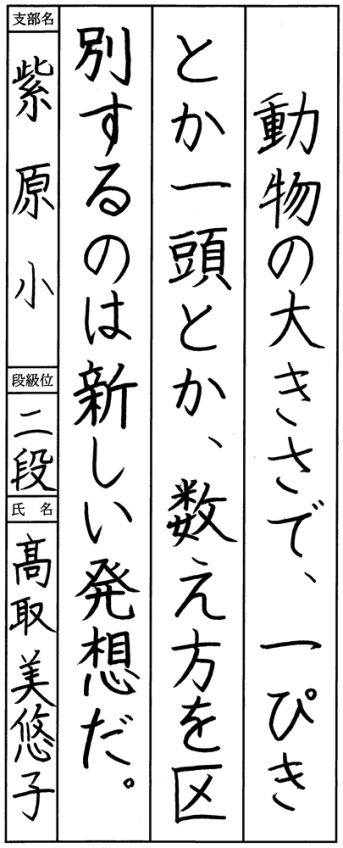 動物の大きさで、一ぴき
とか一頭とか、数え方を区
別するのは新しい発想だ。
支部名
紫原小
段級位
二段
氏名
髙取美悠子